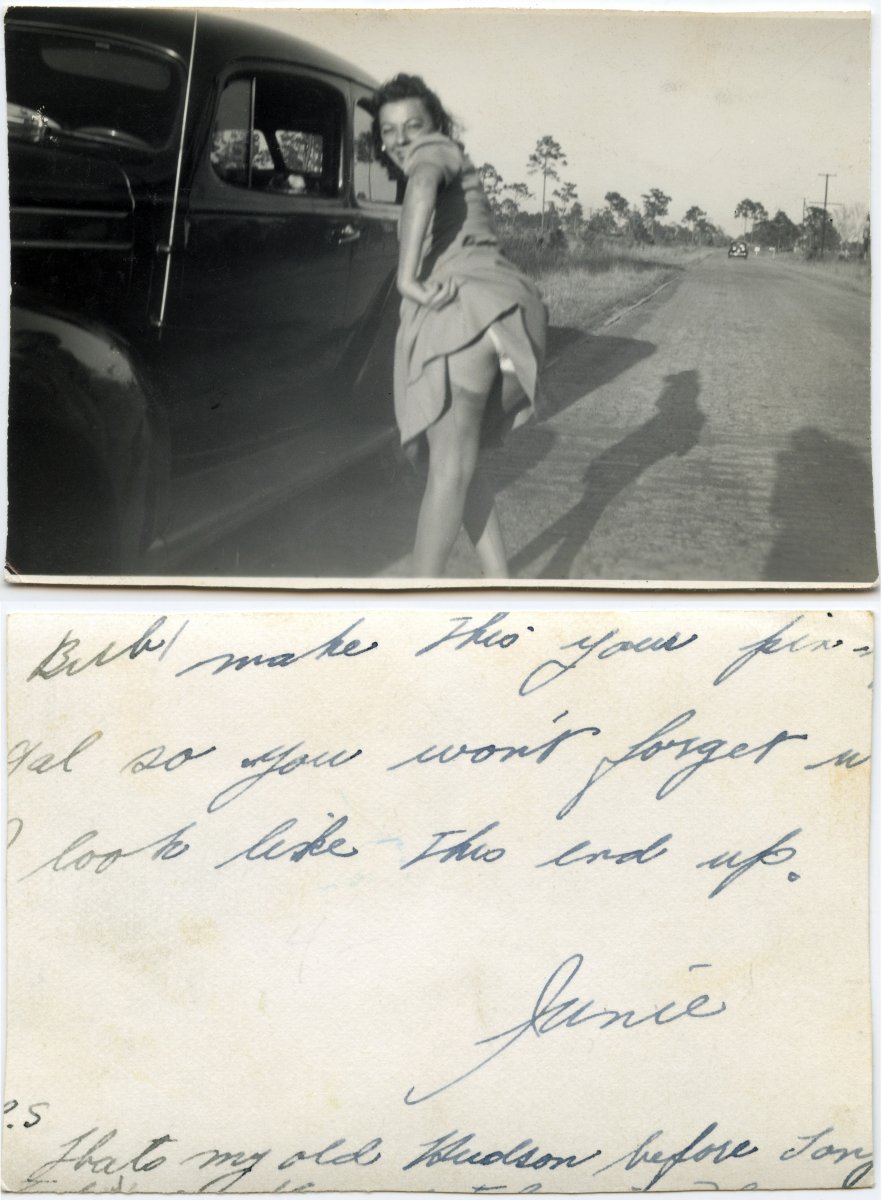 Bub/ make this your pin-
gal so you won't forget
look like this end up.
Janie
P.S
Thats my old Hudson before